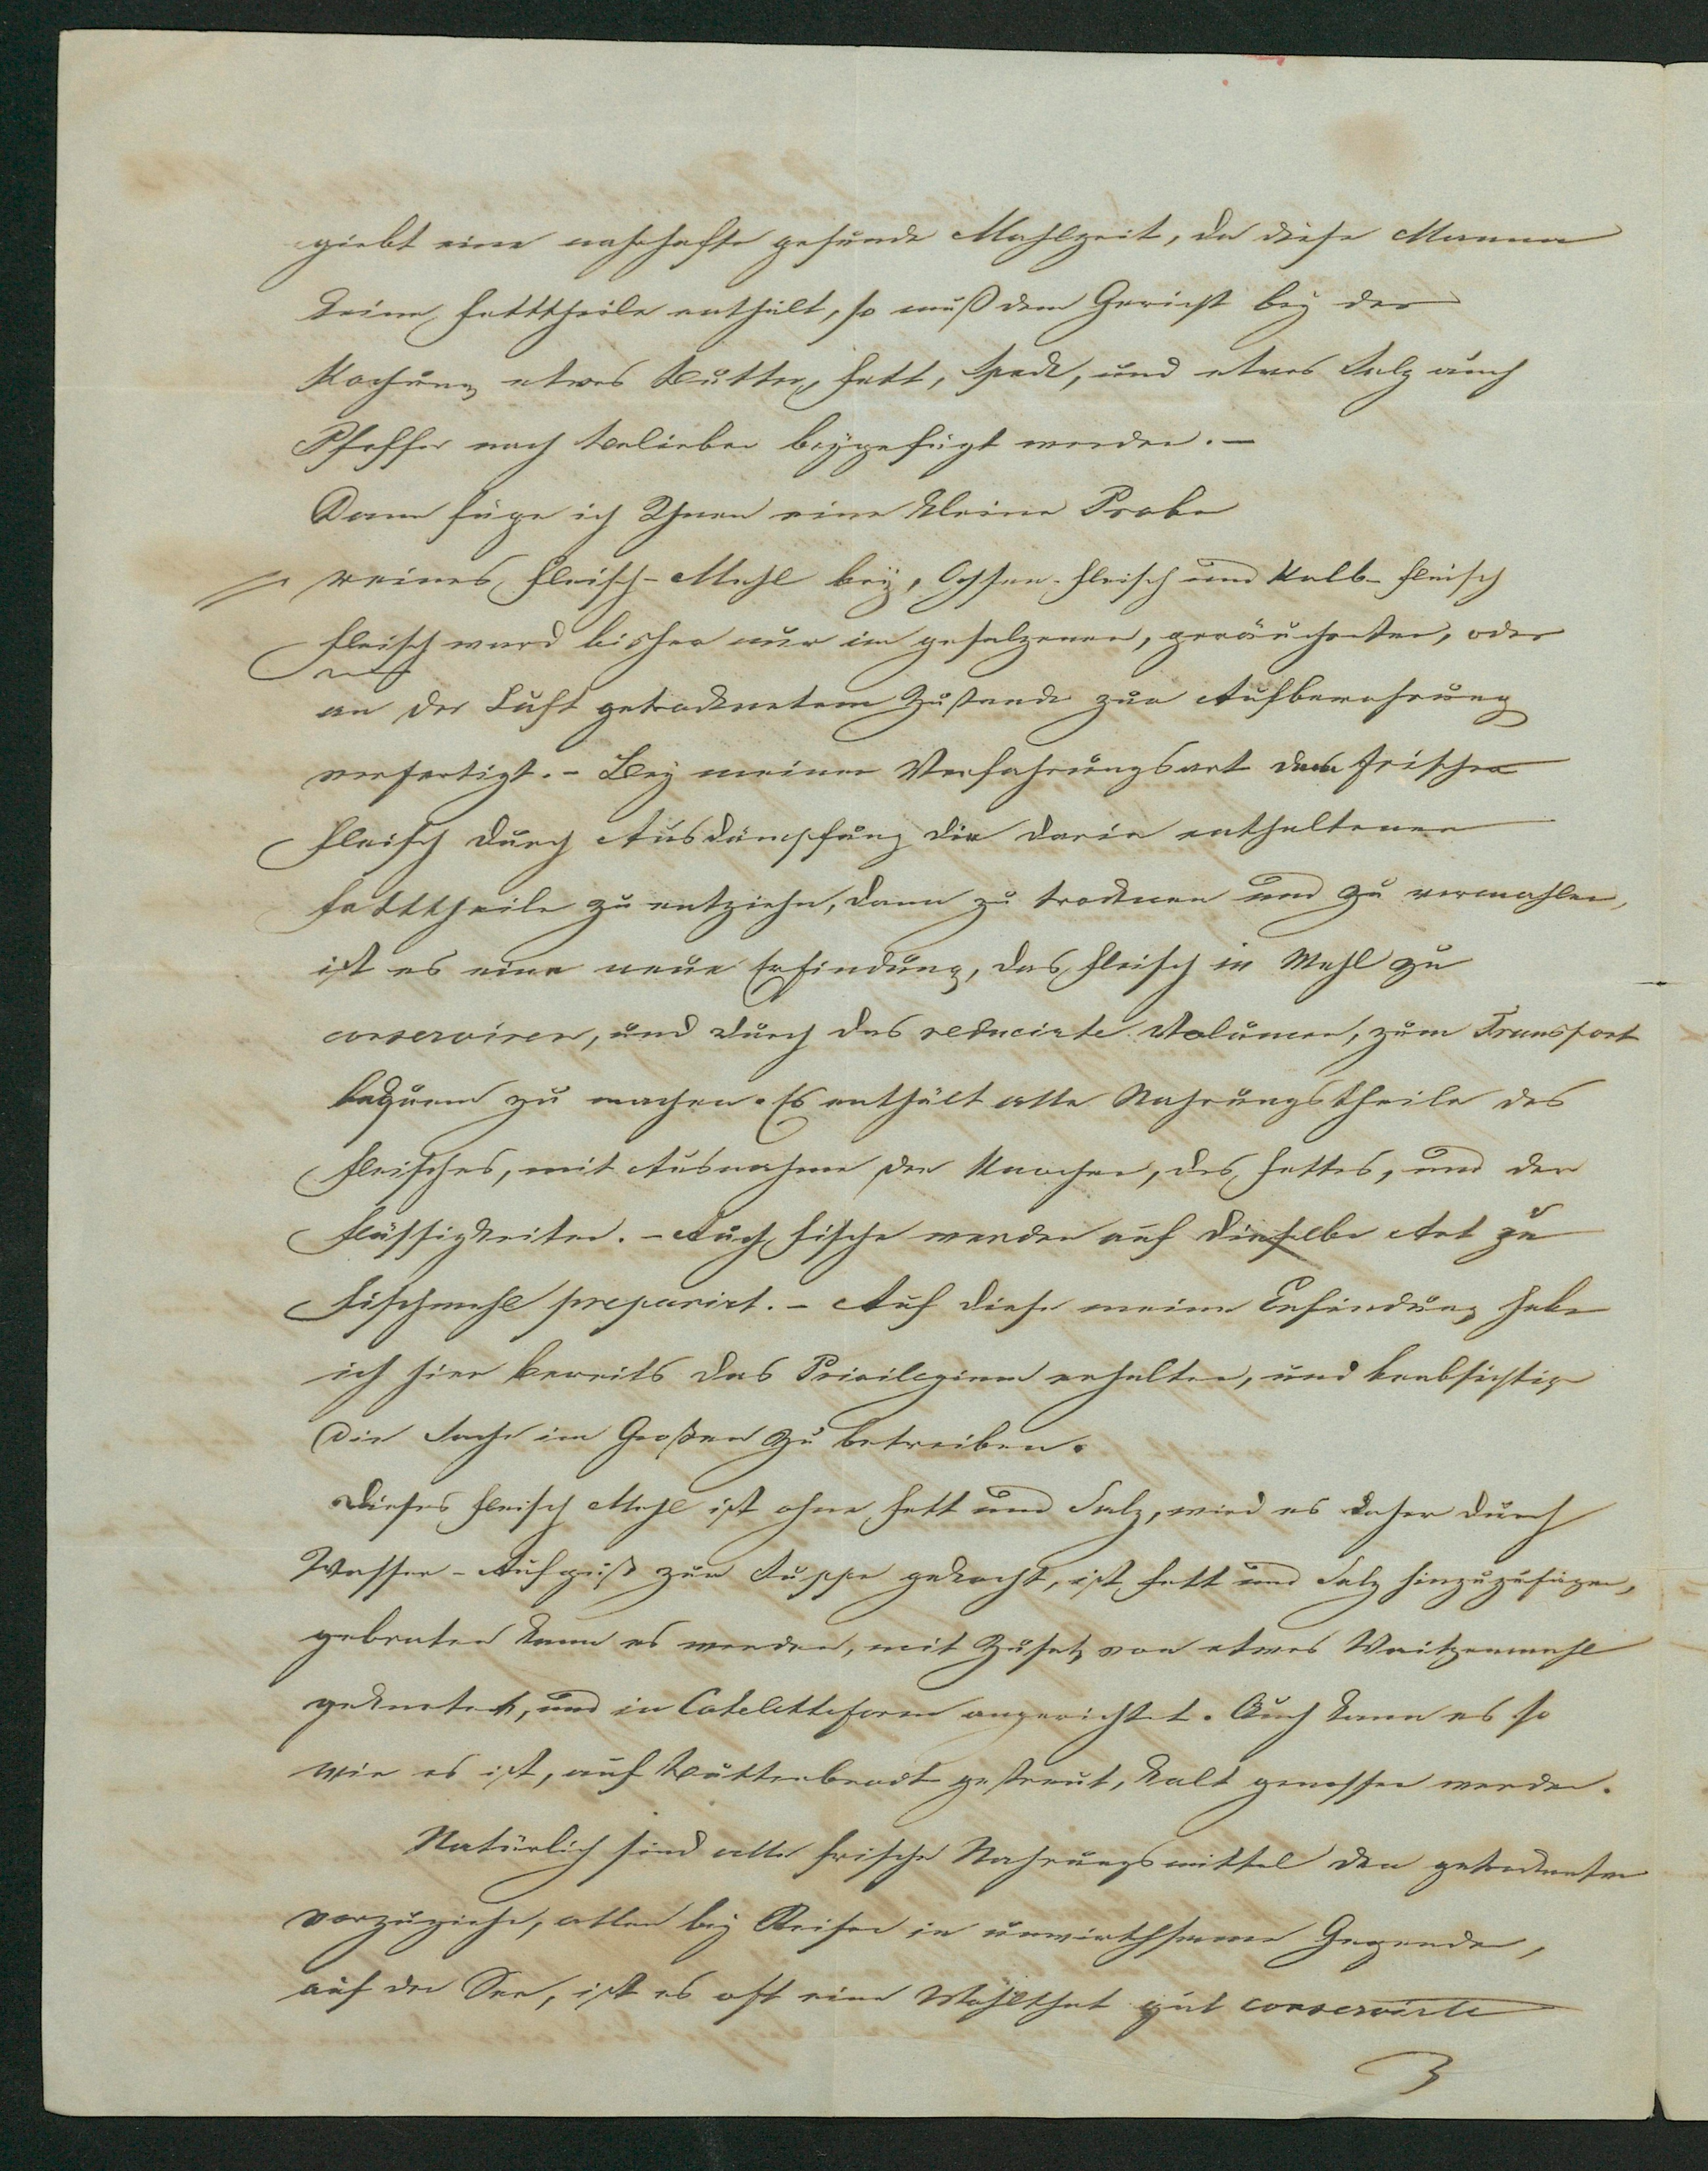 giebt eine nahrhafte gesunde Mahlzeit, da diese Manna
keine Fetttheile enthält, so muß dem Gericht bey der
Kochung etwas Butter, Fett, Speck, und etwas Salz auch
Pfeffer nach Belieben beygefügt werden. —
Dann füge ich Ihnen eine kleine Probe
reines Fleisch-Mehl bey, Ochsen-Fleisch und Kalb-Fleisch
Fleisch ward bisher nur im gesalzenen, geräucherten, oder
an der Luft getrocknetem Zustande zur Aufbewahrung
verfertigt. - Bey meiner Verfahrungsart dem frischen
Fleisch durch Ausdämpfung die darin enthaltenen
Fetttheile zu entziehn, dann zu trocknen und zu vermahlen,
ist es eine neue Erfindung, das Fleisch in Mehl zu
conserviren, und durch das reducirte Volumen, zum Transport
bequem zu machen. Es enthält alle Nahrungstheile des
Fleisches, mit Ausnahme der Knochen, des Fettes, und der
Flüssigkeiten. - Auch Fische werden auf dieselbe Art zu
Fischmehl preparirt. - Auf diese meine Erfindung habe
ich hier bereits das Privilegium erhalten, und beabsichtige
die Sache im Großen zu betreiben.
Dieses Fleisch Mehl ist ohne Fett und Salz, wird es daher durch
Wasser-Aufguß zur Suppe gekocht, ist Fett und Salz hinzuzufügen,
gebraten kann es werden, mit Zusatz von etwas Waitzenmehl
geknetet, und in Coteletteform angerichtet. Auch kann es so
wie es ist, auf Butterbrodt gestreut, kalt genossen werden.
Natürlich sind alle frische Nahrungsmittel den getrockneten
vorzuziehn, allein bey Reisen in unwirthsamen Gegenden,
auf der See, ist es oft eine Wohlthat gut conservirte